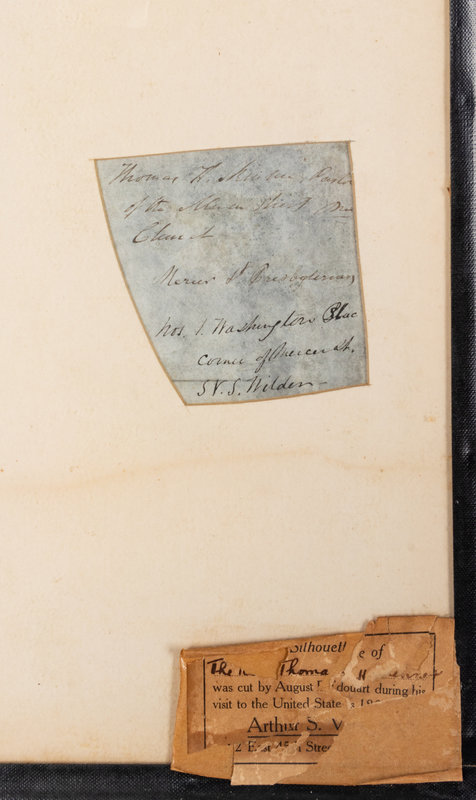 Thomas H. Skinner, Pastor
of the Mercer Street Pres
Church
Mercer St Presbyterian
No. 1. Washington Plac
corner of Mercer St.
S. V. S. Wilder
Silhouette of
The Thomas H
was cut by August Edouart during his
visit to the United States
Arthur S. V
East Stree